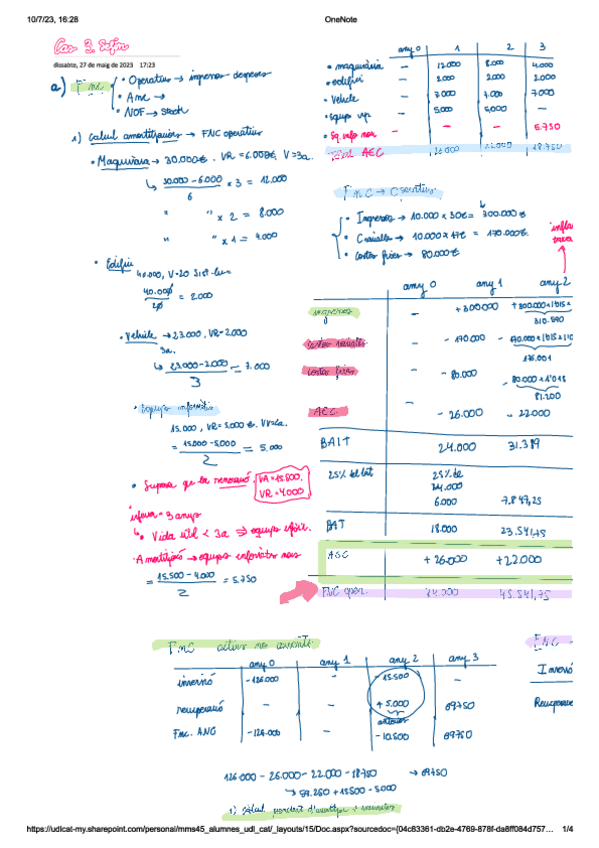 10/7/23, 16:28
OneNote
Cas 3.
dissabte, 27 de maig de 2023 17:23
a) FNC
• Operatius → ingressos - despeses
• Anc →
• NOF → stock
1) Calcul amortitzacions → FNC operatius
• Maquinaria → 30.000€. VR = 6.000€, V=3a.
30.000 - 6.000 / 6 * 3 = 12.000
" " x 2 = 8.000
" " x 1 = 4.000
• Edifici 40.000, V=20
40.000 / 20 = 2.000
• Vehicle → 23.000, VR=2.000
3a.
↳ 23.000 - 2.000 / 3 = 7.000
• Equips informàtics
15.000, VR = 5.000 €.
= 15.000 - 5.000 / 2 = 5.000
• Suposa que la renovació VA = 15.500. VR = 4.000
↳ Vida útil < 3a ⇒ equips
Amortització → equips informàtics nous
= 15.500 - 4.000 / 2 = 5.750
any 0 1 2 3
• maquinària - 12.000 8.000 4.000
• edifici - 2.000 2.000 2.000
• Vehicle - 7.000 7.000 7.000
• equips - 5.000 5.000 -
- - - 5.750
Total AEC 26.000 22.000 18.750
FNC → Operatius
• Ingressos → 10.000 x 30€ = 300.000 €
• C variables → 10.000 x 17€ = 170.000€.
• Costos fixes → 80.000€
any 0 any 1 any 2
ingressos - + 300.000
costos variables - - 170.000
costos fixes - 80.000 - 80.000 x 1'015
81.200
AEC. - - 26.000 - 22.000
BAIT 24.000 31.389
25% del bai 25% de 24.000
6.000 7.847,25
BAT 18.000 23.541,75
AEC + 26.000 +22.000
FNC oper. 44.000 45.541,75
FNC actius no corrents
any 0 any 1 any 2 any 3
inversió -126.000 - -15.500 -
recuperació - - + 5.000 69750
Fnc. ANC -126.000 - -10.500 69750
FNC
Inversió
126.000 - 26.000 - 22.000 - 18750 → 69750
↳ 59.250 + 15500 - 5000
https://udlcat-my.sharepoint.com/personal/mms45_alumnes_udl_cat/_layouts/15/Doc.aspx?sourcedoc={04c83361-db2e-4769-878f-da8ff084d757…
1/4